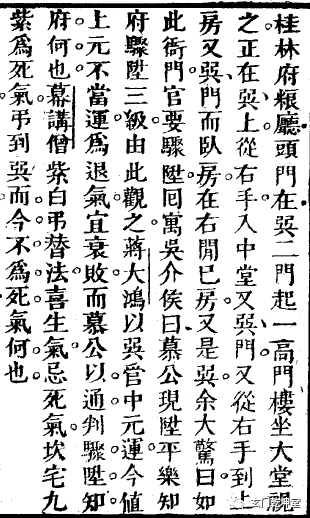 桂林府糧廳頭門在巽二門起一高門樓坐大堂
之正在巽上從右手入中堂又巽門又從右手到上
房又巽門而臥房在右閒巳房又是巽余大驚曰如
此衙門官要驟陞囘寓吳介侯曰慕公現陞平樂知
府驟陞三級由此觀之蔣大鴻以巽管中元運今値
上元不當運爲退氣宜衰敗而慕公以通判驟陞知
府何也幕講僧紫白弔替法喜生氣忌死氣坎宅九
紫爲死氣弔到巽而今不爲死氣何也